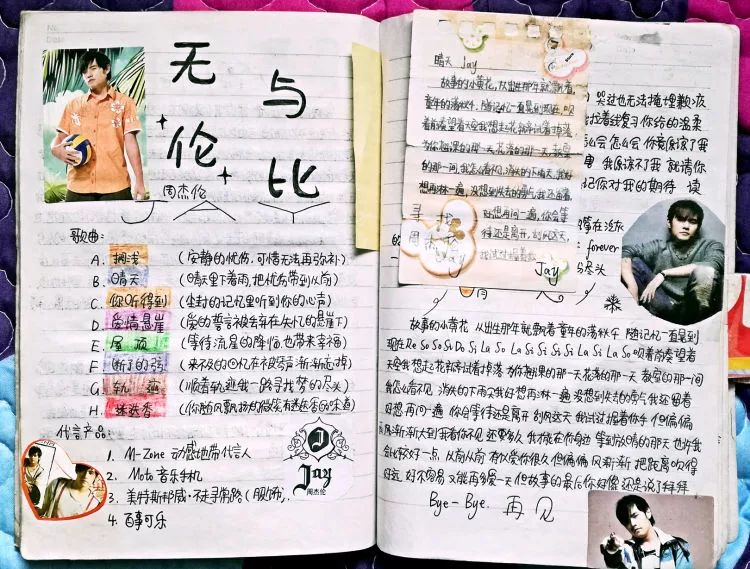 无与伦比
周杰伦
JAY
歌曲:
A. 搁浅 (安静的忧伤,可惜无法再弥补)
B. 晴天 (晴天里下着雨,把忧伤带到从前)
C. 你听得到 (尘封的记忆里听到你的心声)
D. 爱情悬崖 (爱的誓言被丢弃在失忆的悬崖下)
E. 屋顶 (等待流星的降临也带来幸福)
F. 断了的弦 (来不及的回忆在被琴声渐渐忘掉)
G. 轨迹 (顺着轨迹我一路寻找梦的尽头)
H. 迷迭香
代言产品:
1. M-Zone 动感地带代言人
2. Moto 音乐手机
3. 美特斯邦威·不走寻常路(服饰).
4. 百事可乐
J
Jay
周杰伦
晴天 Jay
故事的小黄花,从出生那年就飘着,
童年的荡秋千,随记忆一直晃到现在,吹
着前奏望着天空我想起花瓣试着掉落
为你翘课的那一天花落的那一天教室
的那一间,我怎么看不见,消失的下雨天,我好
想再淋一遍,没想到失去的勇气我还留着,
好想再问一遍,你会等
待还是离开,刮风这天,
寻找
周杰伦
Jay
Jay
哭过也无法掩埋歉疚
拉着线复习你给的温柔
么会怎么会 你竟原谅了我
我原谅不了我 就请你
记你对我的期待 读
forever
尽头
故事的小黄花 从出生那年就飘着 童年的荡秋千 随记忆一直晃到
现在 Re So So Si Do Si La So La Si Si Si Si La Si La So 吹着前奏望着
天空我想起花瓣试着掉落 为你翘课的那一天花落的那一天 教室的那一间
我怎么看不见 消失的下雨天我好想再淋一遍 没想到失去的勇气我还留着
好想再问一遍 你会等待还是离开 刮风这天 我试过握着你手 但偏偏
雨渐渐大到我看你不见 还要多久 我才能在你身边 等到放晴的那天 也许我
会比较好一点 从前从前 有个人爱你很久 但偏偏 风渐渐 把距离吹得
好远 好不容易 又能再多爱一天 但故事的最后你好像还是说了拜拜
Bye-Bye. 再见